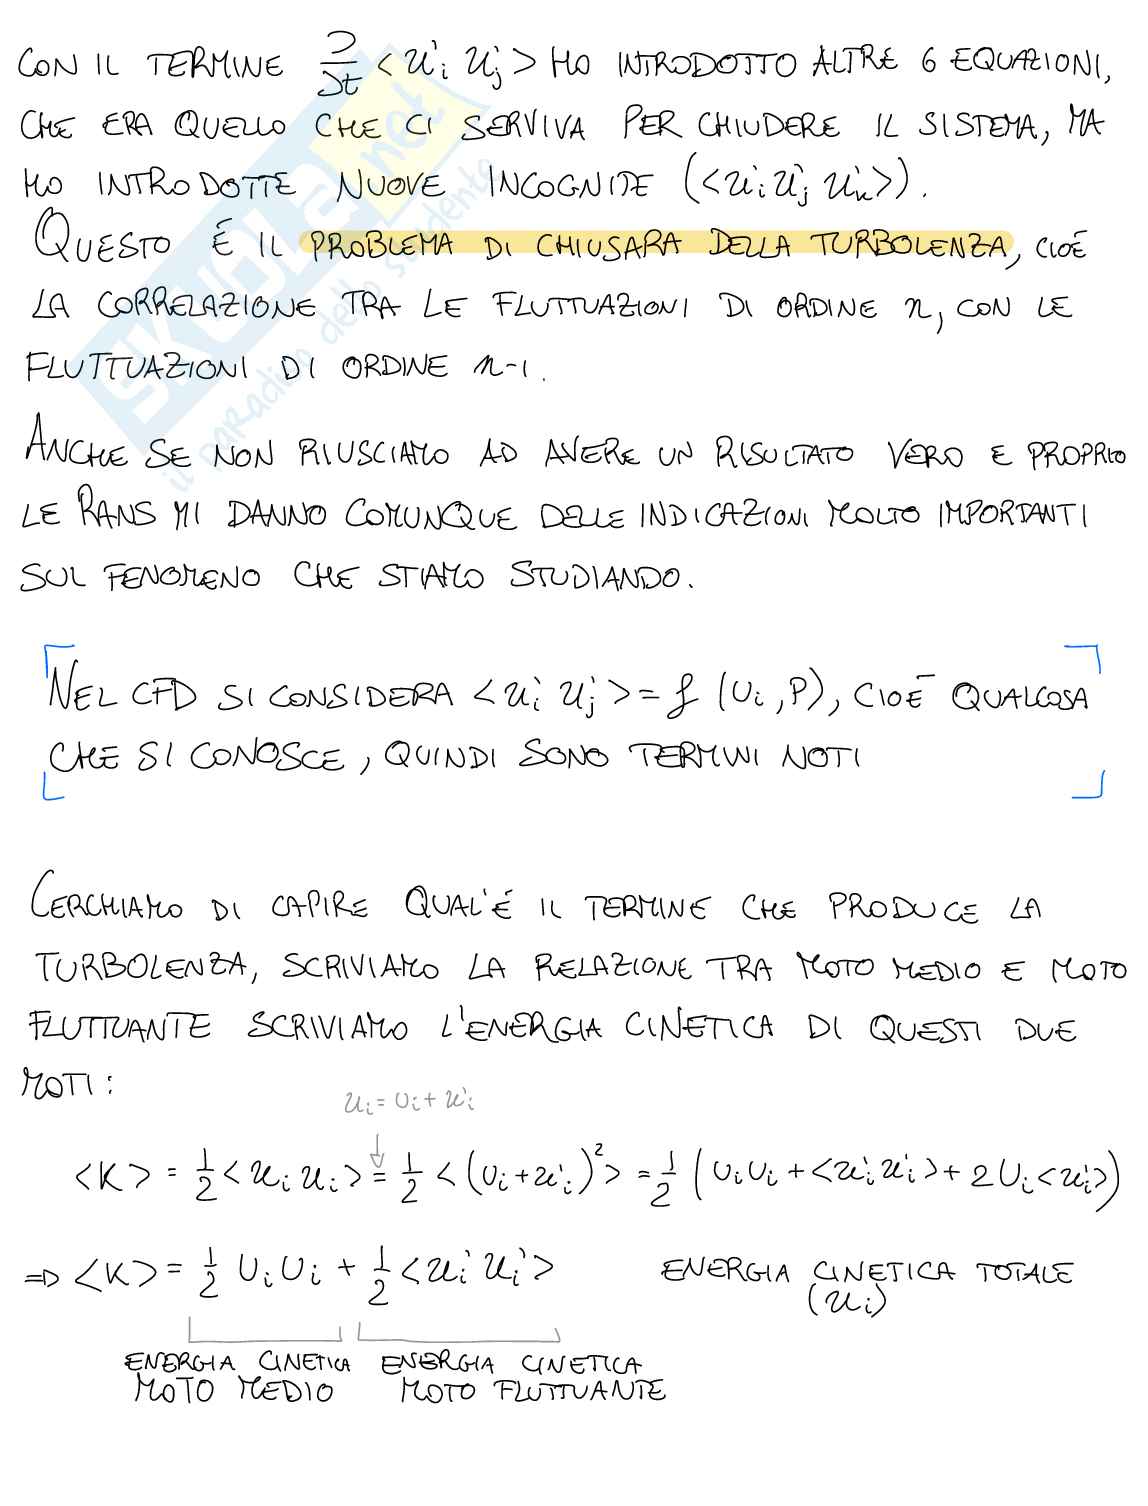 CON IL TERMINE ∂/∂t <u'i u'j> HO INTRODOTTO ALTRE 6 EQUAZIONI,
CHE ERA QUELLO CHE CI SERVIVA PER CHIUDERE IL SISTEMA, MA
HO INTRODOTTE NUOVE INCOGNITE (<u'i u'j u'k>).
QUESTO É IL PROBLEMA DI CHIUSARA DELLA TURBOLENZA, CIOÈ
LA CORRELAZIONE TRA LE FLUTTUAZIONI DI ORDINE n, CON LE
FLUTTUAZIONI DI ORDINE n-1.
ANCHE SE NON RIUSCIAMO AD AVERE UN RISULTATO VERO E PROPRIO
LE RANS MI DANNO COMUNQUE DELLE INDICAZIONI MOLTO IMPORTANTI
SUL FENOMENO CHE STIAMO STUDIANDO.
NEL CFD SI CONSIDERA <u'i u'j> = f (Ui, P), CIOÈ QUALCOSA
CHE SI CONOSCE, QUINDI SONO TERMINI NOTI
CERCHIAMO DI CAPIRE QUAL'É IL TERMINE CHE PRODUCE LA
TURBOLENZA, SCRIVIAMO LA RELAZIONE TRA MOTO MEDIO E MOTO
FLUTTUANTE SCRIVIAMO L'ENERGIA CINETICA DI QUESTI DUE
MOTI:
ui = Ui + u'i
<K> = 1/2 <ui ui> = 1/2 <(Ui + u'i)²> = 1/2 (Ui Ui + <u'i u'i> + 2 Ui <u'i>)
⇒ <K> = 1/2 Ui Ui + 1/2 <u'i u'i> ENERGIA CINETICA TOTALE
(ui)
ENERGIA CINETICA MOTO MEDIO
ENERGIA CINETICA MOTO FLUTTUANTE
SKUOLA.net
il paradiso dello studente